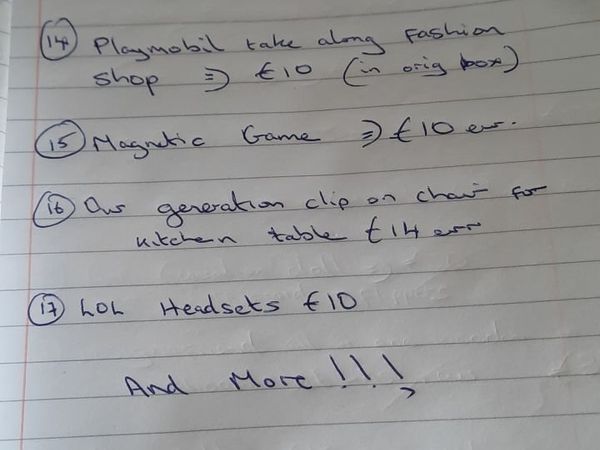 14 Playmobil take along Fashion
shop => €10 (in orig box)
15 Magnetic Game => €10 eur.
16 Our generation clip on chair for
kitchen table €14 eur
17 LOL Headsets €10
And More !!!